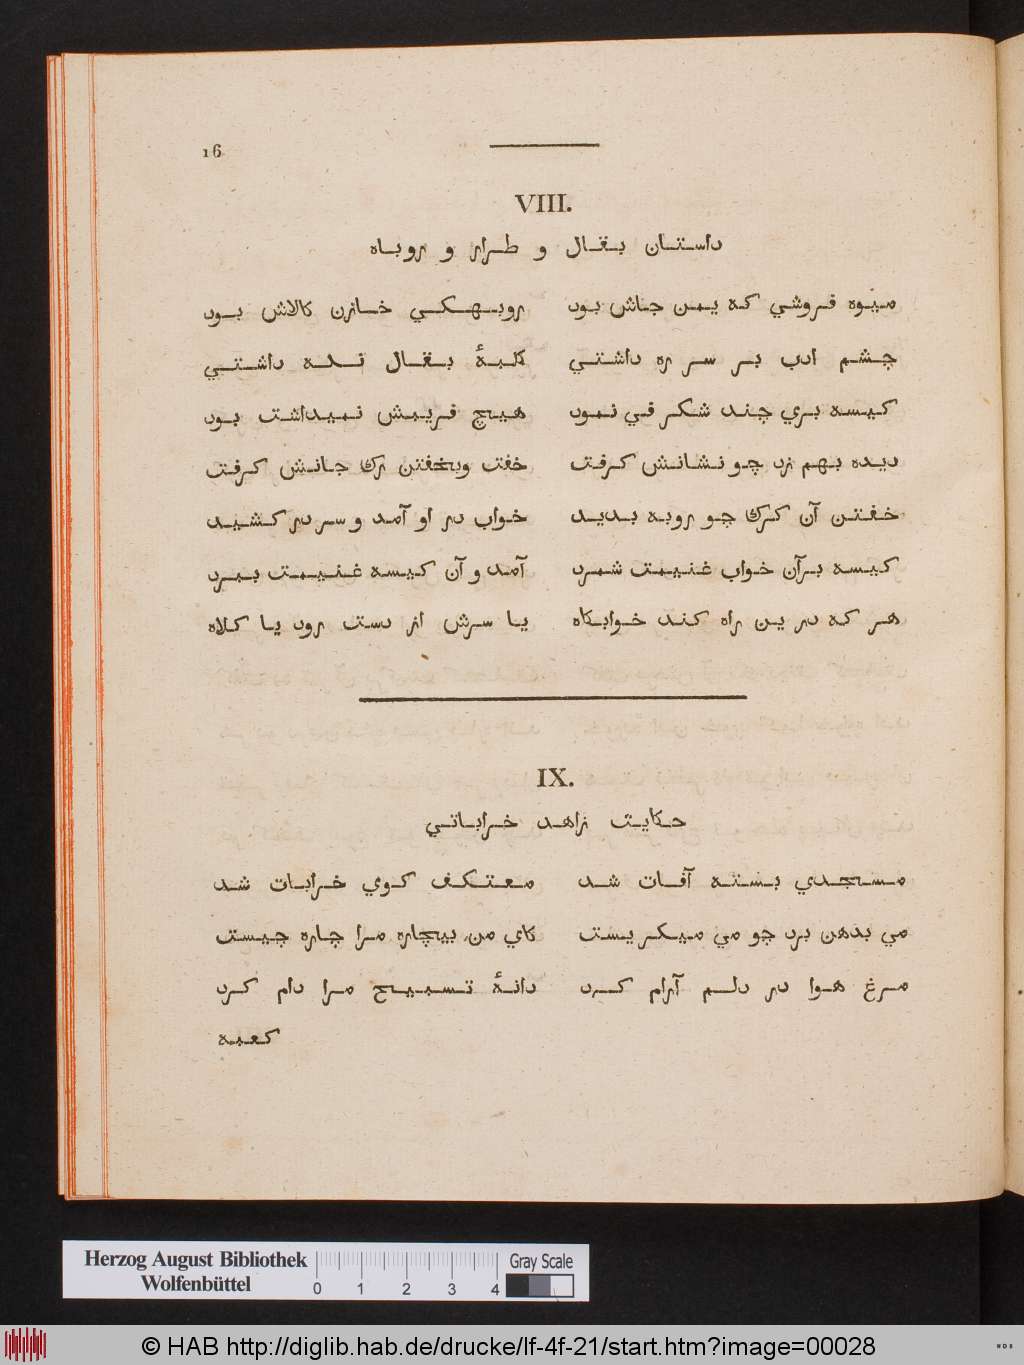 16
VIII.
داستان بقال و طرار و روباه
ميوه فروشي كه يمن جاش بود روبهكي خازن كالاش بود
چشم ادب بر سر ره داشتي كلبهٔ بقال نكه داشتي
كيسه بري چند شكر في نمود هيچ فريمش نميداشت بود
ديده بهم زد چو نشانش كرفت خفت وبخفتن رك جانش كرفت
خفتن آن كرك چو روبه بديد خواب در او آمد و سر در كشيد
كيسه برآن خواب غنيمت شمرد آمد و آن كيسه غنيمت ببرد
هر كه در ين راه كند خوابكاه يا سرش از دست رود يا كلاه
IX.
حكايت زاهد خراباتي
مسجدي بسته آفات شد معتكف كوي خرابات شد
مي بدهن برد چو مي ميكريست كاي من بيچاره مرا چاره چيست
مرغ هوا در دلم آرام كرد دانهٔ تسبيح مرا دام كرد
كعبه
Herzog August Bibliothek
Wolfenbüttel
0 1 2 3 4
Gray Scale
© HAB http://diglib.hab.de/drucke/lf-4f-21/start.htm?image=00028